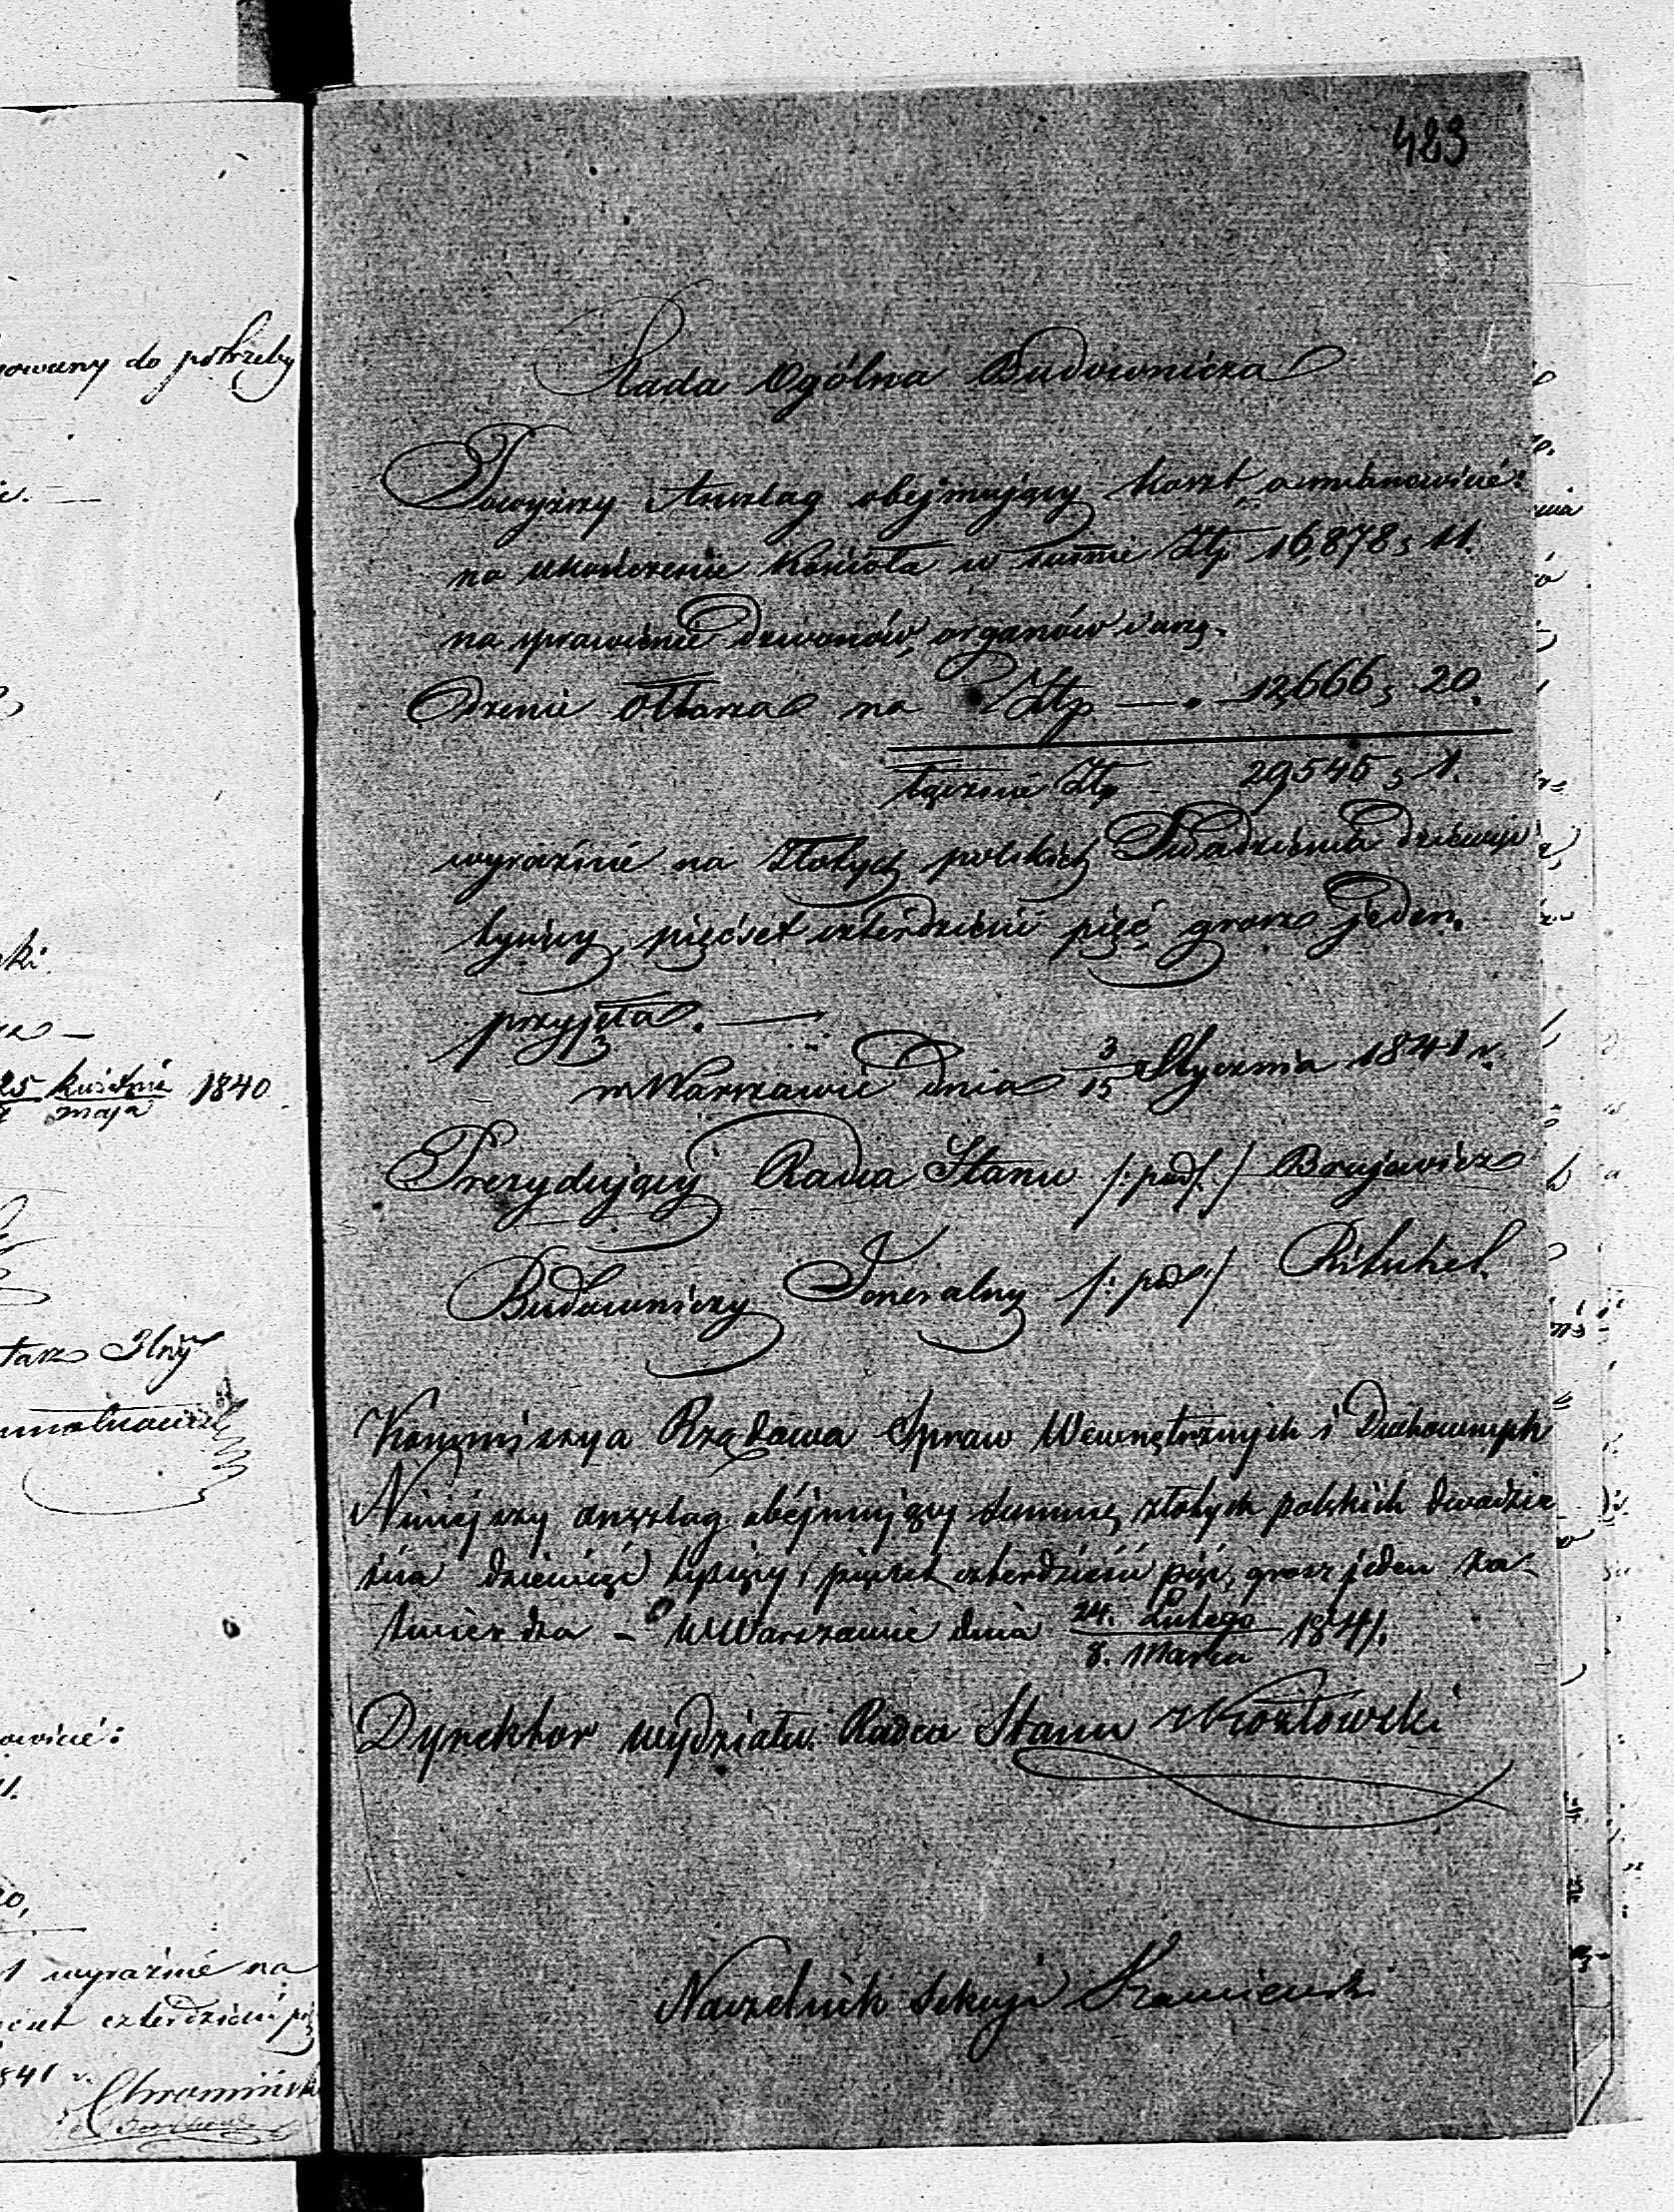 483
Rada Ogólna Budownicza
Powyższy Anszlag obejmujący koszt, a mianowicie:
na ukończenie Kościoła w summie Złp. 16,878, 11.
na sprawienie dzwonów, organów i urzą-
dzenie Ołtarza na Złp — . 12,666, 20.
łącznie Złp 29545, 1.
wyraźnie na Złotych polskich Dwadzieścia dziewięć
tysięcy, pięćset czterdzieści pięć grosz jeden.
przyjęła. —
w Warszawie dnia 3/15 Stycznia 1841 r.
Prezydujący Radca Stanu /: pod: /
Budowniczy Jeneralny /: pod: /
Kommissya Rządowa Spraw Wewnętrznych i Duchownych
Niniejszy anszlag obejmujący summę złotych polskich dwadzie
ścia dziewięć tysięcy pięćset czterdzieści pięć, grosz jeden za-
twierdza – w Warszawie dnia 24. Lutego / 8. Marca 1841.
Dyrektor wydziału Radca Stanu Kozłowski
Naczelnik Sekcyi
owany do potrzeby
ki.
25 kwietnia / maja 1840
owicie:
11.
wyraźnie na
czterdzieści pię
841 r.